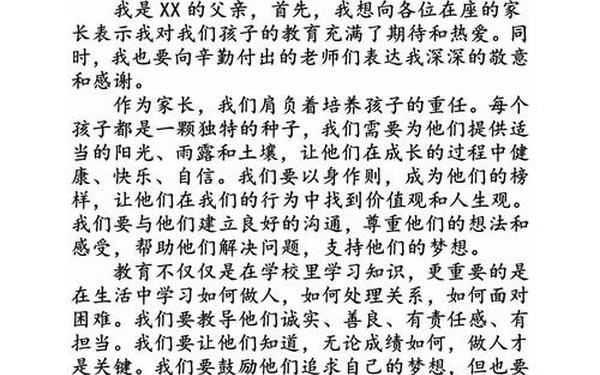 我是 XX 的父亲，首先，我想向各位在座的家
长表示我对我们孩子的教育充满了期待和热爱。同
时，我也要向辛勤付出的老师们表达我深深的敬意
和感谢。
作为家长，我们肩负着培养孩子的重任。每个
孩子都是一颗独特的种子，我们需要为他们提供适
当的阳光、雨露和土壤，让他们在成长的过程中健
康、快乐、自信。我们要以身作则，成为他们的榜
样，让他们在我们的行为中找到价值观和人生观。
我们要与他们建立良好的沟通，尊重他们的想法和
感受，帮助他们解决问题，支持他们的梦想。
教育不仅仅是在学校里学习知识，更重要的是
在生活中学习如何做人，如何处理关系，如何面对
困难。我们要教导他们诚实、善良、有责任感、有
担当。我们要让他们知道，无论成绩如何，做人才
是关键。我们要鼓励他们追求自己的梦想，但也要